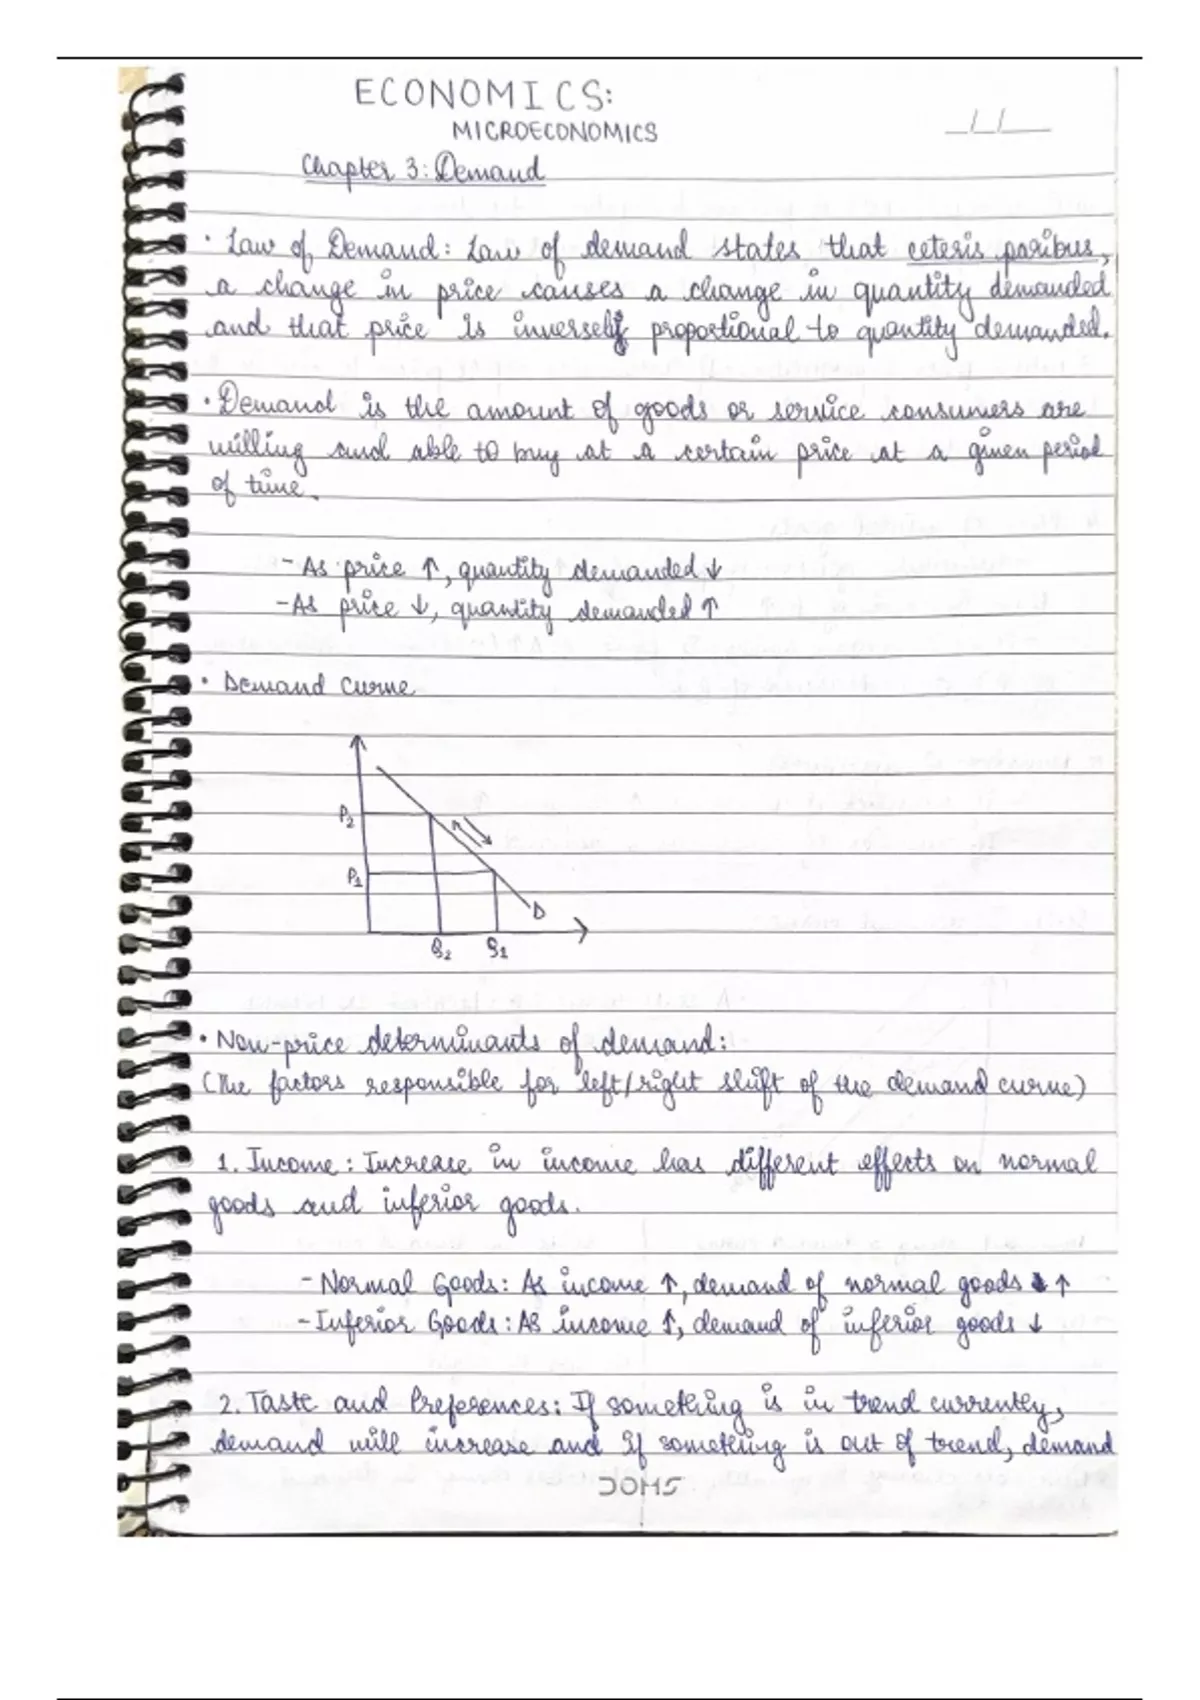 ECONOMICS:
MICROECONOMICS
Chapter 3: Demand
• Law of Demand: Law of demand states that ceteris paribus,
a change in price causes a change in quantity demanded
and that price is inversely proportional to quantity demanded.
• Demand is the amount of goods or service consumers are
willing and able to buy at a certain price at a given period
of time.
- As price ↑, quantity demanded ↓
- As price ↓, quantity demanded ↑
• Demand Curve
P2
P1
D
Q2 Q1
• Non-price determinants of demand:
(The factors responsible for left/right shift of the demand curve)
1. Income: Increase in income has different effects on normal
goods and inferior goods.
- Normal Goods: As income ↑, demand of normal goods ↑
- Inferior Goods: As income ↑, demand of inferior goods ↓
2. Taste and Preferences: If something is in trend currently,
demand will increase and if something is out of trend, demand